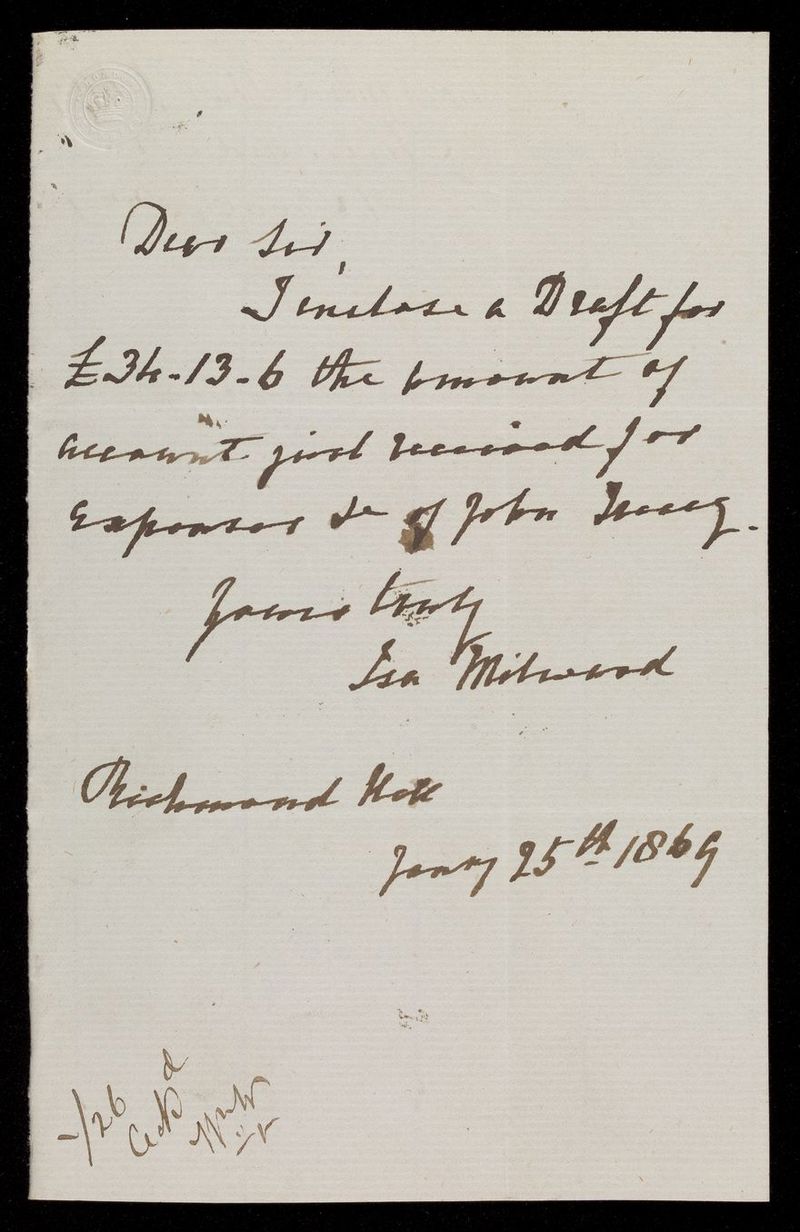 Dear Sir,
I inclose a Draft for
£34-13-6 the amount of
account just received for
Expenses &c of John
Yours truly
Isa Milward
Richmond Hill
Jany 25th 1869
-/26
Ackd